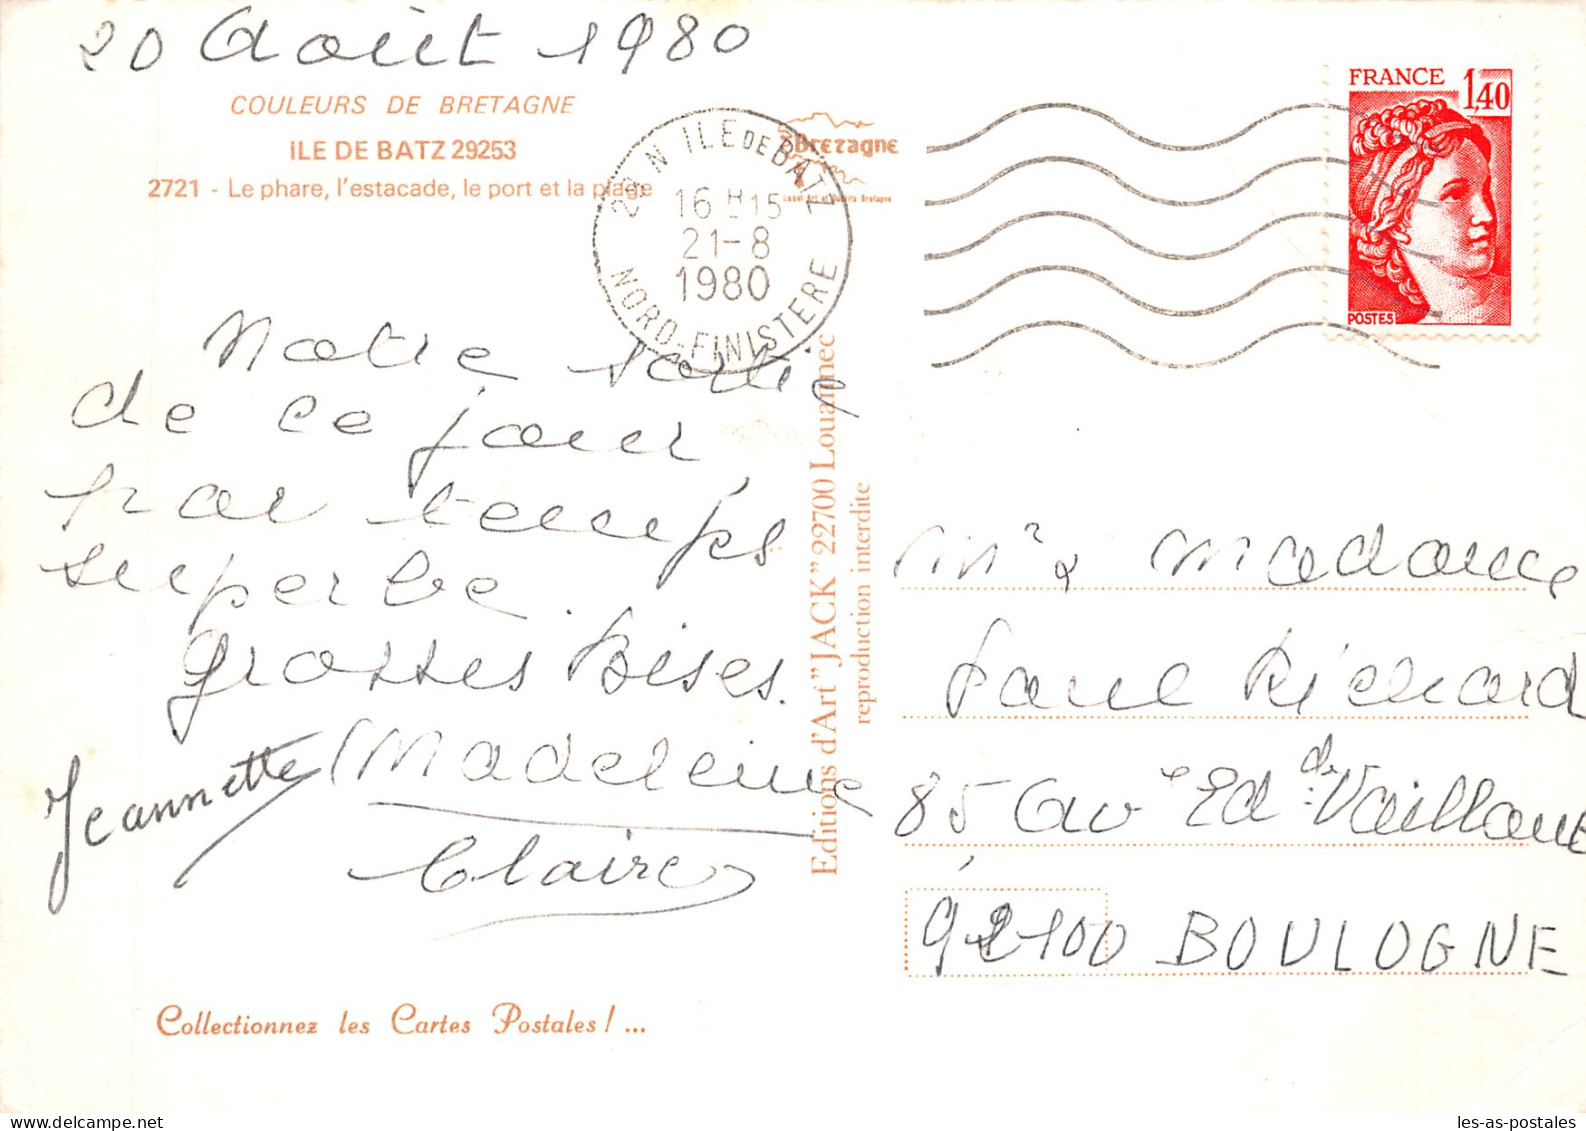 20 Août 1980
COULEURS DE BRETAGNE
ILE DE BATZ 29253
2721 - Le phare, l'estacade, le port et la plage
29 N ILE DE BATZ
16 H 15
21-8
1980
NORD-FINISTERE
Bretagne
Label Art et Qualité Bretagne
FRANCE 1,40
POSTES
Notre sortie
de ce jour,
par temps
superbe.
Grosses Bises.
Madeleine
Jeannette
Claire
Editions d'Art "JACK" 22700 Louannec
reproduction interdite
Mr & Madame
Paul Richard
85 Av Ed Vaillant
92100 BOULOGNE
Collectionnez les Cartes Postales ! ...
les-as-postales.com